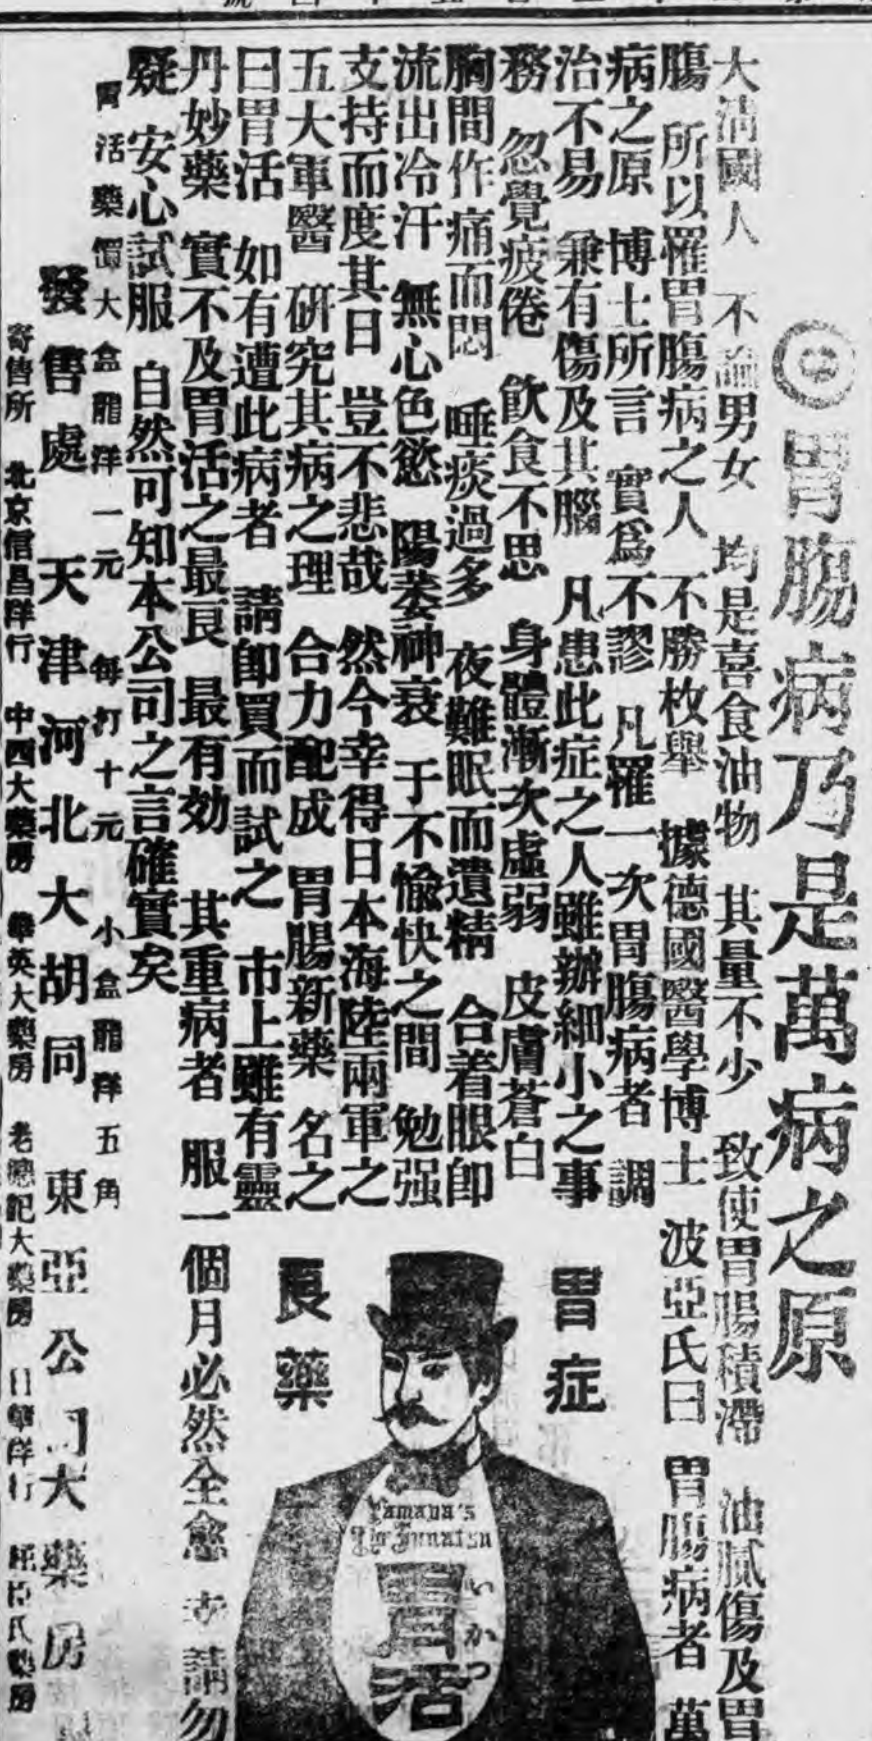 胃腸病乃是萬病之原
大淸國人 不論男女 均是喜食油物 其量不少 致使胃腸積滯 油膩傷及胃
腸 所以罹胃腸病之人 不勝枚舉 據德國醫學博士 波亞氏曰 胃腸病者 萬
病之原 博士所言 實爲不謬 凡罹一次胃腸病者 調
治不易 兼有傷及其腦 凡患此症之人雖辦細小之事
務 忽覺疲倦 飮食不思 身體漸次虛弱 皮膚蒼白
胸間作痛而悶 唾痰過多 夜難眠而遺精 合着眼卽
流出冷汗 無心色慾 陽萎神衰 于不愉快之間 勉强
支持而度其日 豈不悲哉 然今幸得日本海陸兩軍之
五大軍醫 硏究其病之理 合力配成 胃腸新藥 名之
曰胃活 如有遭此病者 請卽買而試之 市上雖有靈
丹妙藥 實不及胃活之最良 最有効 其重病者 服一個月必然全愈 請勿
疑 安心試服 自然可知本公司之言確實矣
胃活藥價大盒龍洋一元 每打十元 小盒龍洋五角
發售處 天津河北大胡同 東亞公司大藥房
寄售所 北京信昌洋行 中西大藥房 華英大藥房 老德記大藥房 日華洋行 屈臣氏藥房
胃症
良藥
Yamada's
胃活
いかつ